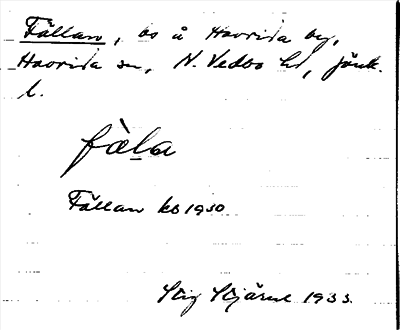 Fällan, bs å Haurida by,
Haurida sn, N. Vedbo hd, Jönk.
l.
fàla
Fällan kb 1930
Stig Stjärne 1933.